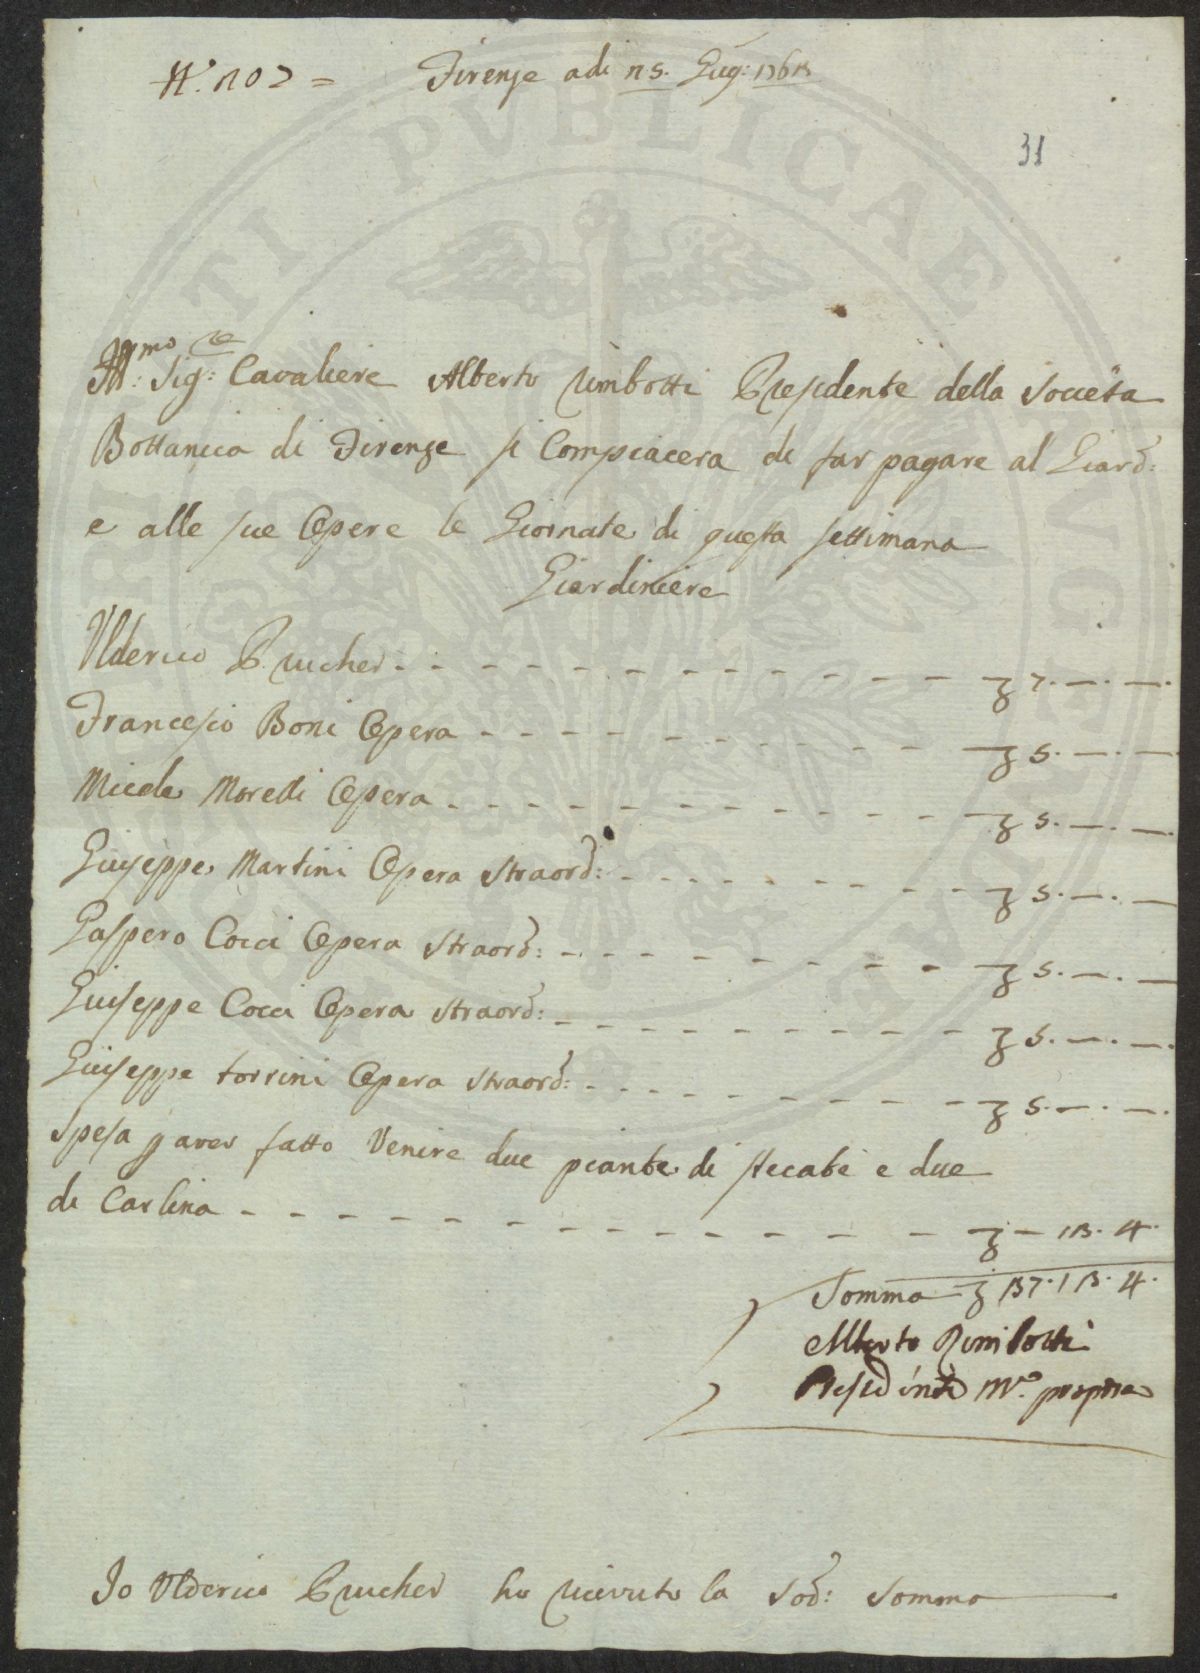 N.° 207 = Firenze adi 25. Giug: 1763
31
Ill:mo Sig: Cavaliere Alberto Rimbotti Presidente della Società
Bottanica di Firenze si Compiacera di far pagare al Giard:
e alle sue Opere le Giornate di questa settimana
Giardiniere
Ulderico Prucher - - - - - - - - - - - - ʒ 7. —. —.
Francesco Boni Opera - - - - - - - - - - ʒ 5. —. —
Micele Moretti Opera - - - - - - - - - - ʒ 5. —. —.
Giuseppe Martini Opera straord: - - - - - - - - ʒ 5. —. —
Gaspero Cocci Opera straord: - - - - - - - - - ʒ 5. —. —
Giuseppe Cocci Opera straord: - - - - - - - - - ʒ 5. —. —.
Giuseppe torrini Opera straord: - - - - - - - - ʒ 5. —. —.
Spesa p aver fatto Venire due piante di stecabe e due
di Carlina - - - - - - - - - - - - - ʒ — 13. 4.
Somma ʒ 37. 13. 4.
Alberto Rimbotti
Presidente M.o propria
Io Ulderico Prucher ho ricevuto la Sod: Somma
PVBLICAE